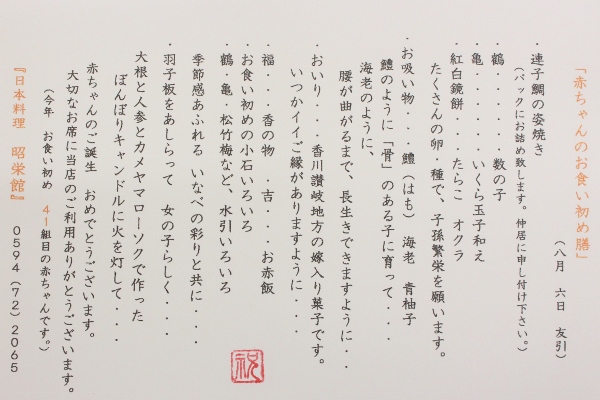 『赤ちゃんのお食い初め膳』
（八月　六日　友引）
・連子鯛の姿焼き
（パックにお詰め致します。仲居に申し付け下さい。）
・鶴・・・・・・数の子
・亀・・・・・・いくら玉子和え
・紅白鏡餅・・・・たらこ　オクラ
たくさんの卵・種で、子孫繁栄を願います。
・お吸い物・・・鱧（はも）　海老　青柚子
鱧のように「骨」のある子に育って・・・・
海老のように、
腰が曲がるまで、長生きできますように・・
・おいり・・・・香川讃岐地方の嫁入り菓子です。
いつかイイご縁がありますように・・・・
・福・・・香の物　・吉・・・お赤飯
・お食い初めの小石いろいろ
・鶴・亀・松竹梅など、水引いろいろ
季節感あふれる　いなべの彩りと共に・・・
・羽子板をあしらって　女の子らしく・・・
大根と人参とカメヤマローソクで作った
ぼんぼりキャンドルに火を灯して・・・
赤ちゃんのご誕生　おめでとうございます。
大切なお席に当店のご利用ありがとうございます。
（今年　お食い初め　４１組目の赤ちゃんです。）
『日本料理　昭栄館』　０５９４（７２）２０６５
祝